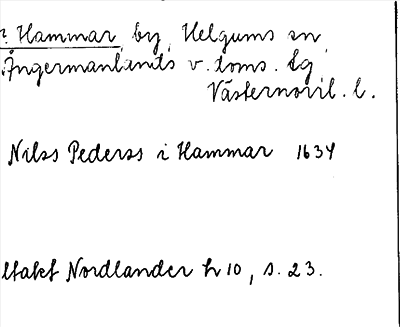 Hammar, by, Helgums sn
Ångermanlands v. doms. sg
Västernorrl. l.
Nilss Pederss i Hammar 1634
ltakt Nordlander h 10, s. 23.